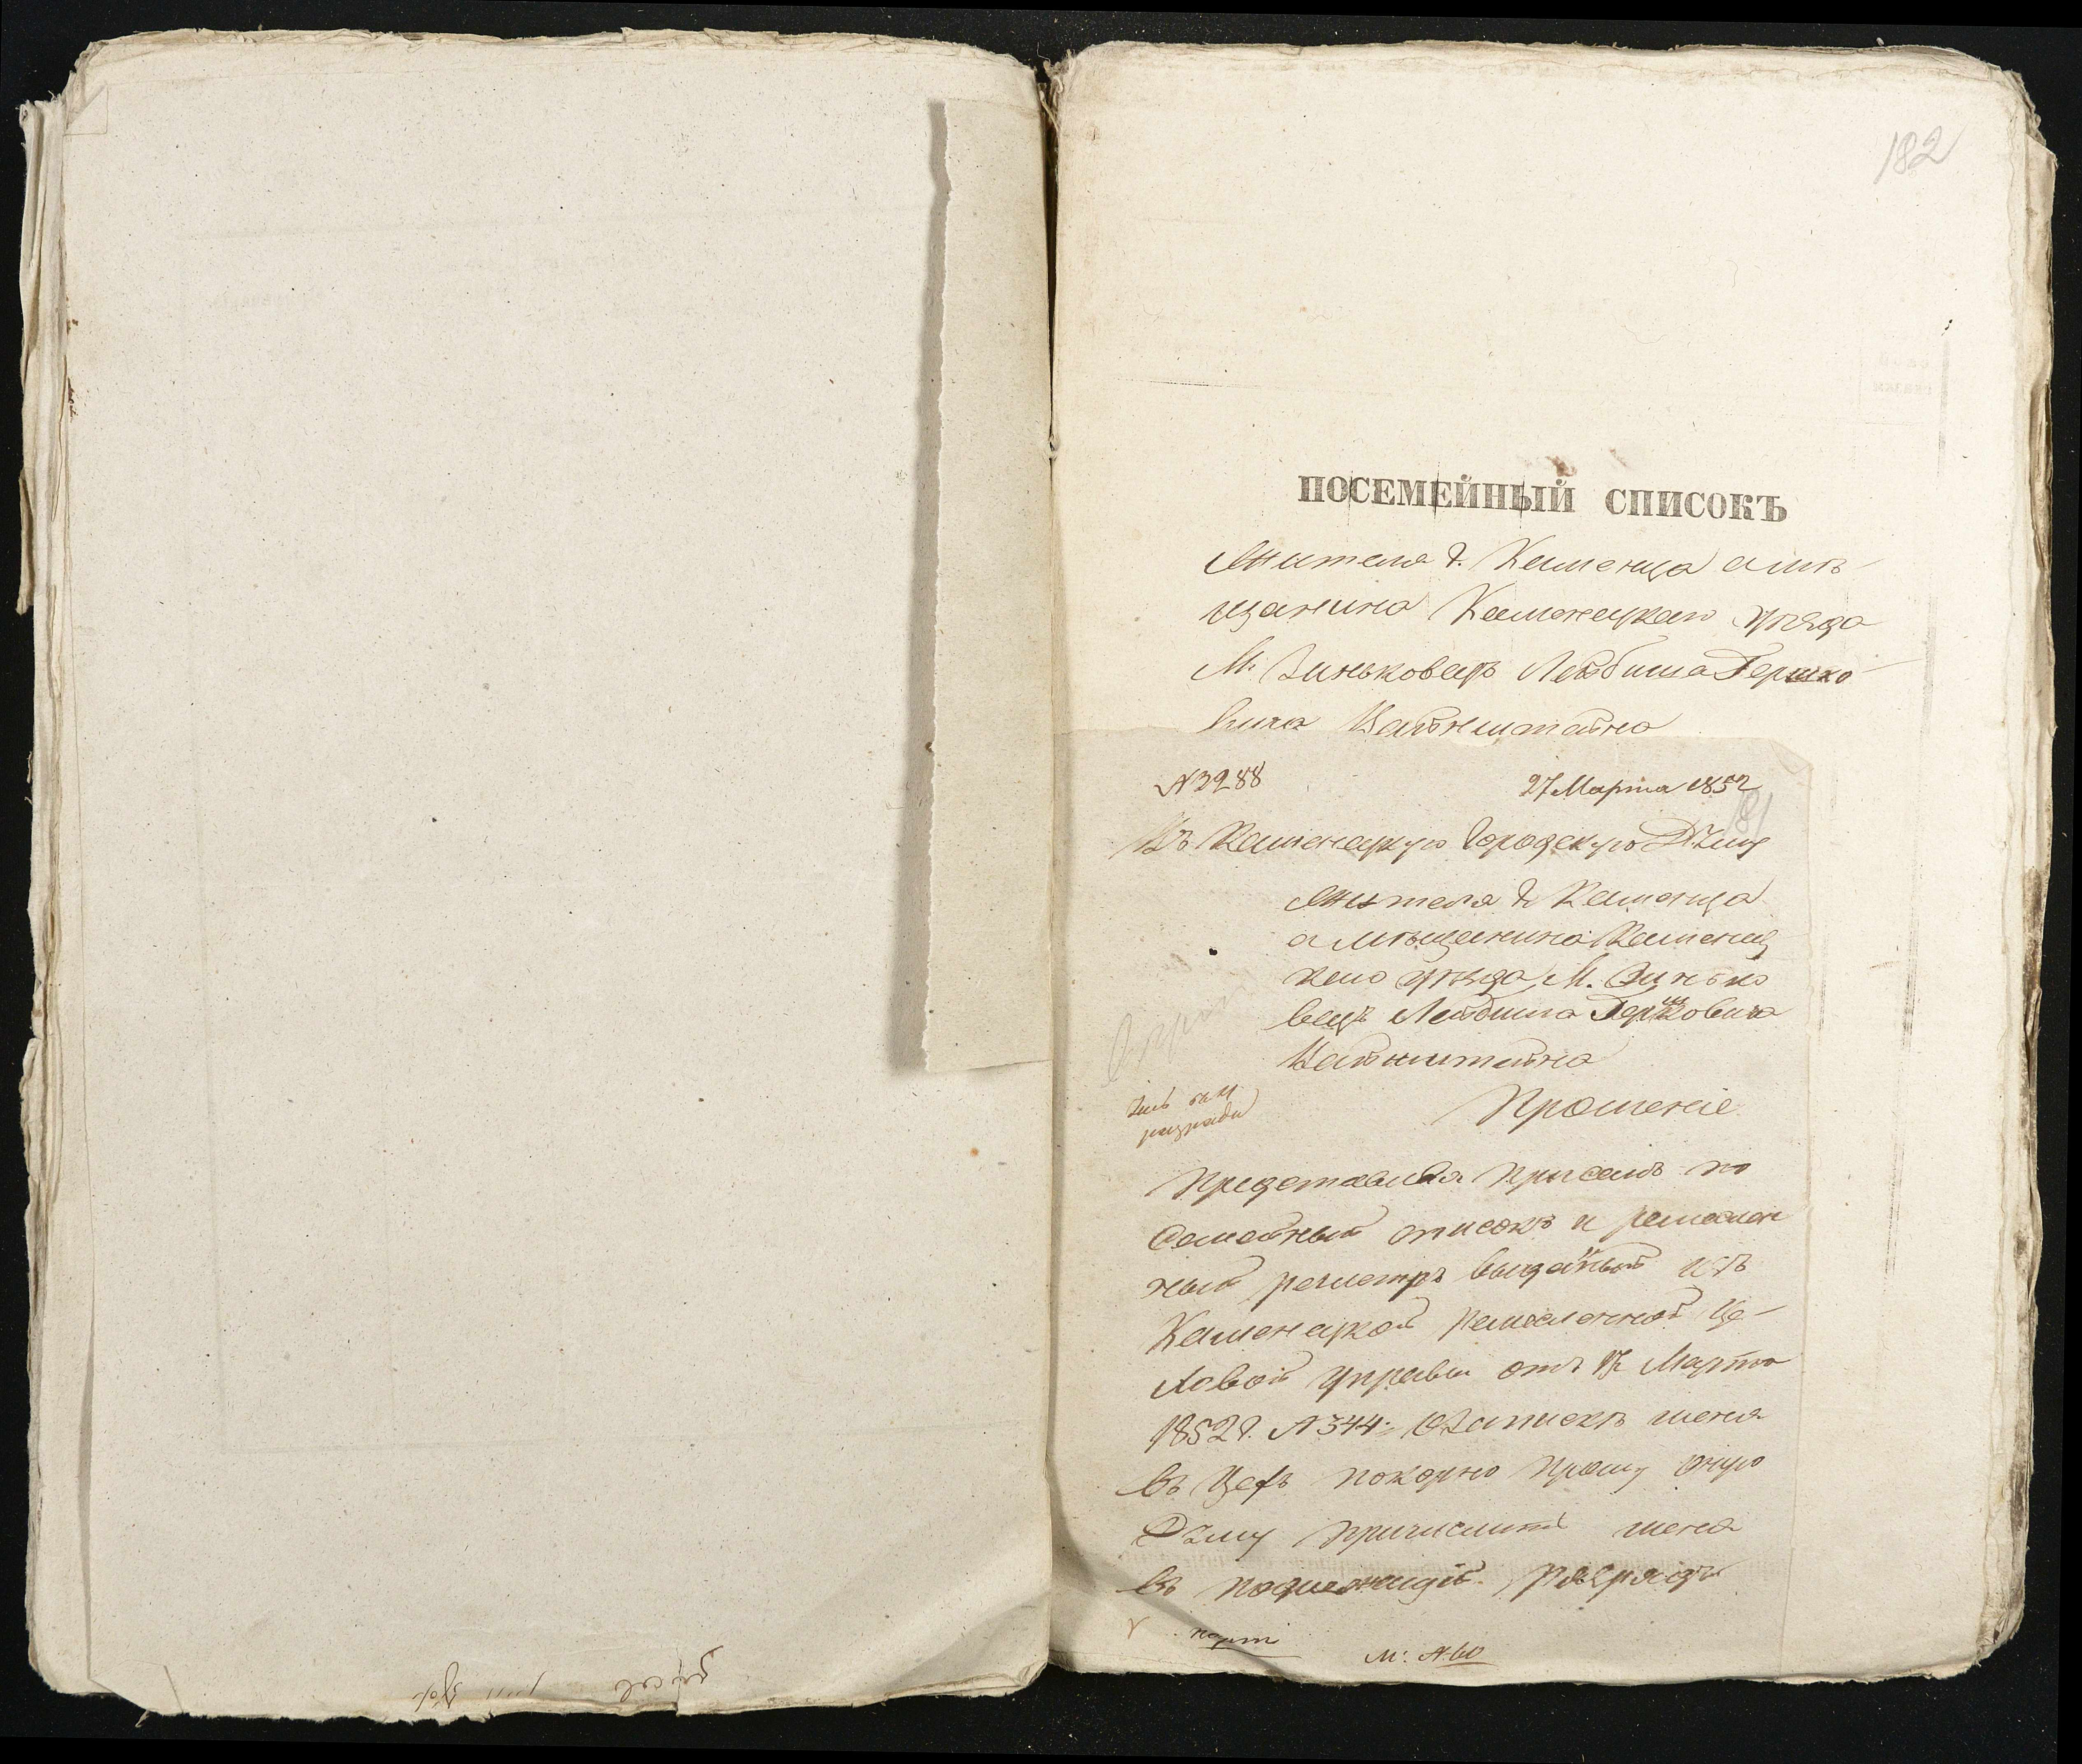 182
ПОСЕМЕЙНЫЙ СПИСОКЪ
Жителя г. Каменца а мѣ-
щанина Каменецкаго уѣзда
М. Зиньковецъ Лейбиша Гершко-
вича Вайнштейна
№ 3288 27 Марта 1852
181
Въ Каменецкую Городскую Думу
Жителя г. Каменца
а мѣщанина Каменец
каго уѣзда М. Зинько
вецъ Лейбиша Гершковича
Вайнштейна
Прошеніе
Представляя при семъ по
семейный списокъ и ремеслен
ный регистръ выданный изъ
Каменецкой Ремесленной Це-
ховой Управы отъ 17 Марта
1852 г. № 344. О запискѣ меня
въ Цехъ покорно прошу оную
Думу причислить меня
въ подлежащій разрядъ
М. № 60